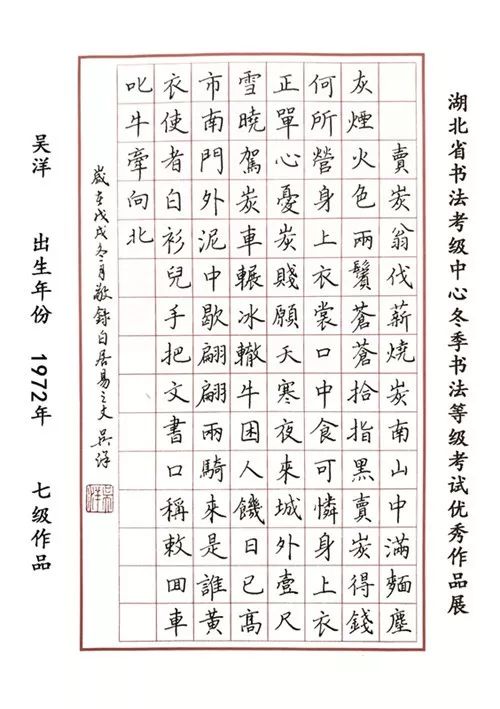 湖北省书法考级中心冬季书法等级考试优秀作品展
賣炭翁伐薪燒炭南山中滿麵塵
灰煙火色兩鬢蒼蒼拾指黑賣炭得錢
何所營身上衣裳口中食可憐身上衣
正單心憂炭賤願天寒夜來城外壹尺
雪曉駕炭車輾冰轍牛困人饑日已高
市南門外泥中歇翩翩兩騎來是誰黃
衣使者白衫兒手把文書口稱敕囬車
叱牛牽向北
歲在戊戌冬月敬錄白居易之文 吴洋
吴洋 出生年份 1972年 七级作品